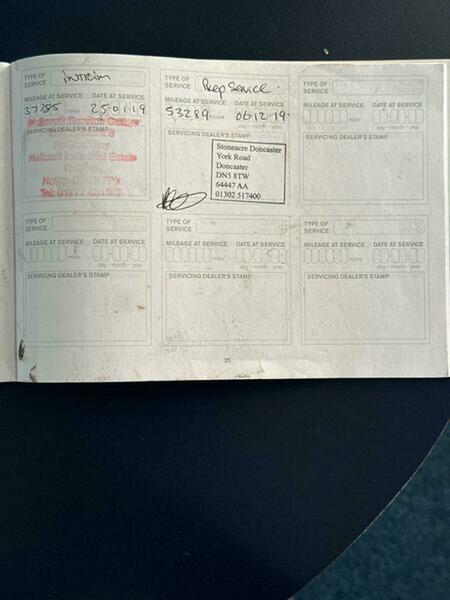 TYPE OF SERVICE interim
MILEAGE AT SERVICE DATE AT SERVICE
37785 miles 25 01 19
SERVICING DEALER'S STAMP
Hallcroft Service Centre
Way
Hallcroft Industrial Estate
TYPE OF SERVICE Prep Service.
MILEAGE AT SERVICE DATE AT SERVICE
53289 miles 06 12 19
day - month - year
SERVICING DEALER'S STAMP
Stoneacre Doncaster
York Road
Doncaster
DN5 8TW
64447 AA
01302 517400
TYPE OF SERVICE
MILEAGE AT SERVICE DATE AT SERVICE
miles
day - month - year
SERVICING DEALER'S STAMP
TYPE OF SERVICE
MILEAGE AT SERVICE DATE AT SERVICE
miles
day - month - year
SERVICING DEALER'S STAMP
TYPE OF SERVICE
MILEAGE AT SERVICE DATE AT SERVICE
miles
day - month - year
SERVICING DEALER'S STAMP
TYPE OF SERVICE
MILEAGE AT SERVICE DATE AT SERVICE
miles
day - month - year
SERVICING DEALER'S STAMP
25